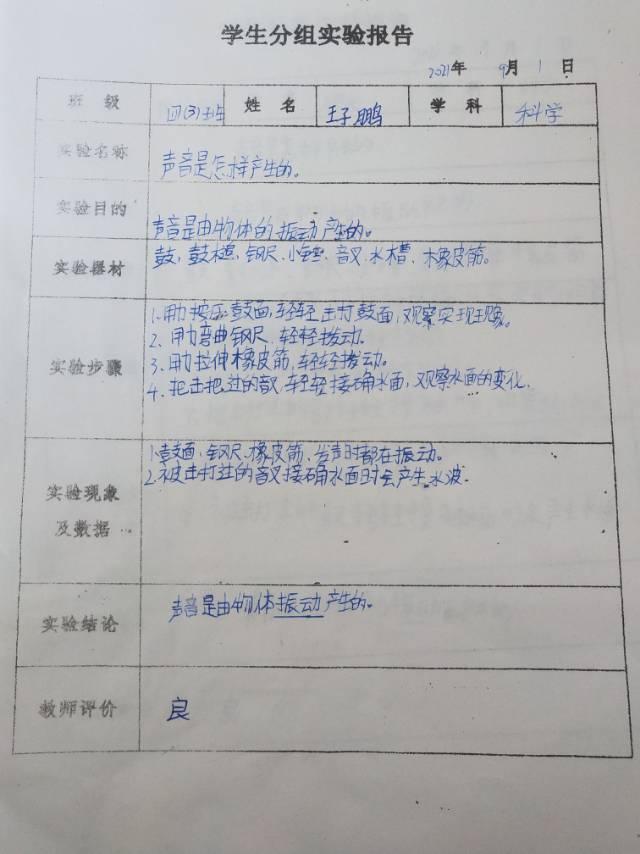 学生分组实验报告
2021年 9月 1日
班级 四(3)班 姓名 王子鹏 学科 科学
实验名称 声音是怎样产生的。
实验目的 声音是由物体的振动产生的。
实验器材 鼓,鼓槌,钢尺,小锤,音叉,水槽,橡皮筋。
实验步骤
1.用力按压鼓面,轻轻击打鼓面,观察实现现象。
2.用力弯曲钢尺,轻轻拨动.
3.用力拉伸橡皮筋,轻轻拨动。
4.把击把过的音叉,轻轻接确水面,观察水面的变化.
实验现象及数据
1.鼓面,钢尺,橡皮筋,发声时都在振动。
2.被击打过的音叉接确水面时会产生水波.
实验结论 声音是由物体振动产生的。
教师评价 良